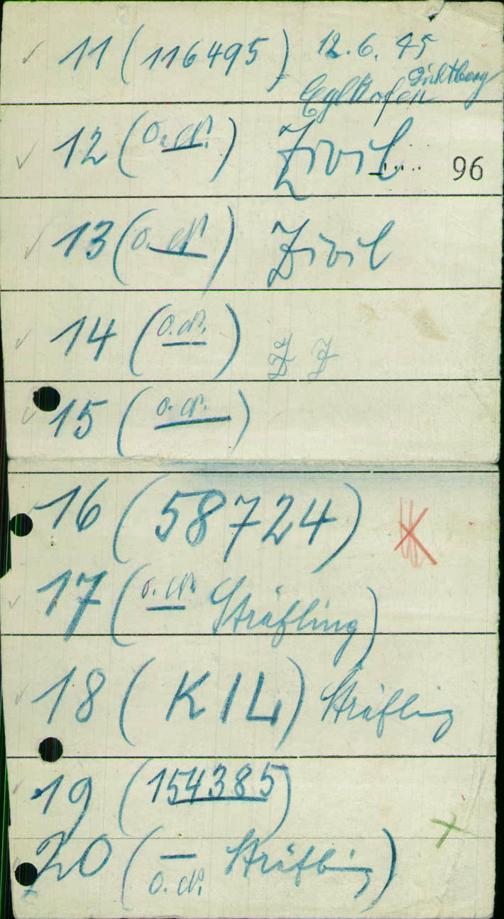 11 (116495) 12.6.45
12 (o.N.) Zivil 96
13 (o.N.) Zivil
14 (o.N.)
15 (o.N.)
16 (58724)
17 (o.N. Sträfling)
18 (KIL) Sträfling
19 (154385)
20 (— Sträfling)
o.N.